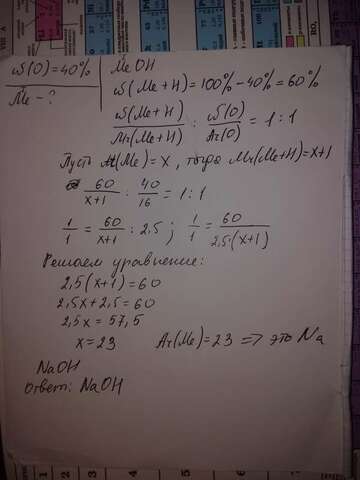 ω(O)=40%
Me - ?
MeOH
ω(Me+H)=100%-40%=60%
ω(Me+H)/Mr(Me+H) : ω(O)/Ar(O) = 1:1
Пусть Ar(Me)=x, тогда Mr(Me+H)=x+1
60/x+1 : 40/16 = 1:1
1/1 = 60/x+1 : 2,5 ; 1/1 = 60/2,5(x+1)
Решаем уравнение:
2,5(x+1)=60
2,5x+2,5=60
2,5x=57,5
x=23 Ar(Me)=23 => это Na
NaOH
Ответ: NaOH